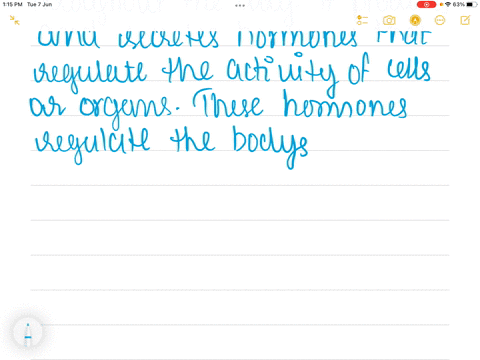 1:15 PM Tue 7 Jun
63%
and secretes hormones that
regulate the activity of cells
or organs. These hormones
regulate the bodys